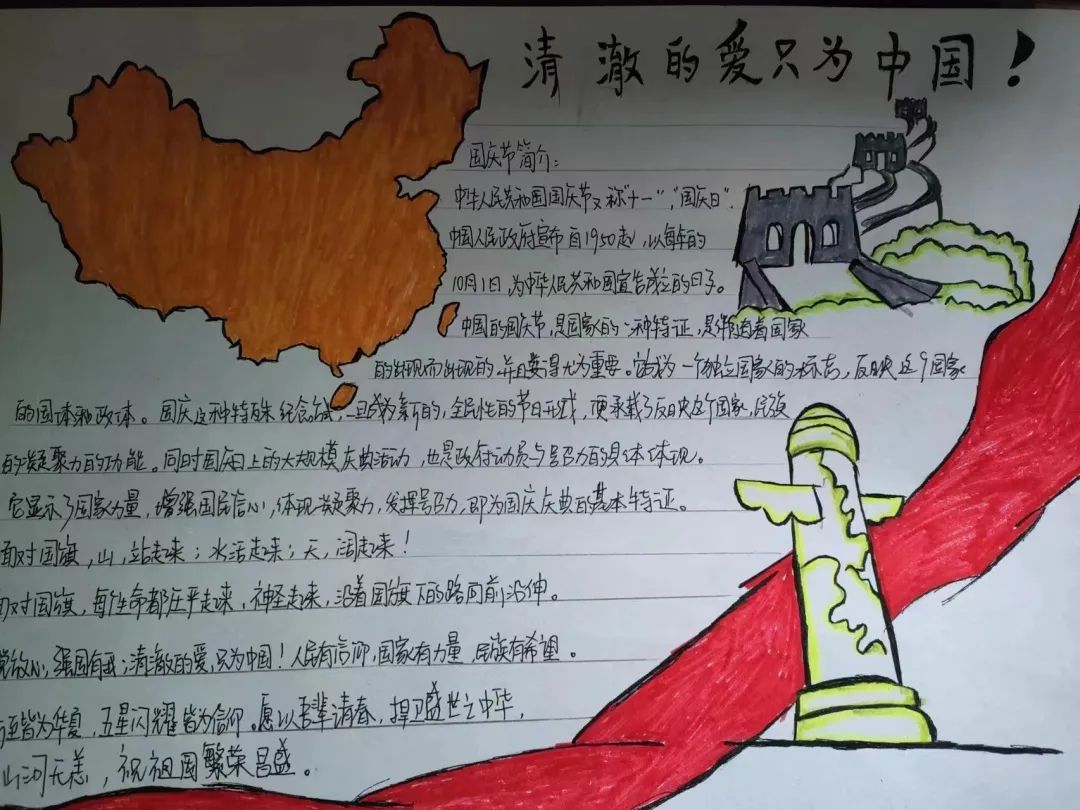 清澈的爱只为中国！
国庆节简介：
中华人民共和国国庆节又称"十一"，"国庆日"．
中国人民政府宣布自1950起，以每年的
10月1日，为中华人民共和国宣告成立的日子。
中国的国庆节，是国家的一种特证，是伴随着国家
的出现而出现的并且变得尤为重要。它成为一个独立国家的标志，反映这个国家
的国体和政体。国庆这种特殊纪念，一旦成为新的，全民性的节日形式，便承载了反映这个国家，民族
的凝聚力的功能。同时国庆日上的大规模庆典活动，也是政府动员与号召力的具体体现。
它显示了国家力量，增强国民信心，体现凝聚力，发挥号召力，即为国庆庆典的基本特证。
面对国旗，山，站起来；水活起来；天，阔起来！
对国旗，每个生命都庄严起来，神圣起来，沿着国旗下的路向前沿伸。
放心，强国有我；清澈的爱，只为中国！人民有信仰，国家有力量，民族有希望。
皆为华夏，五星闪耀皆为信仰。愿以吾辈青春，捍卫盛世之中华，
山河无恙，祝祖国繁荣昌盛。